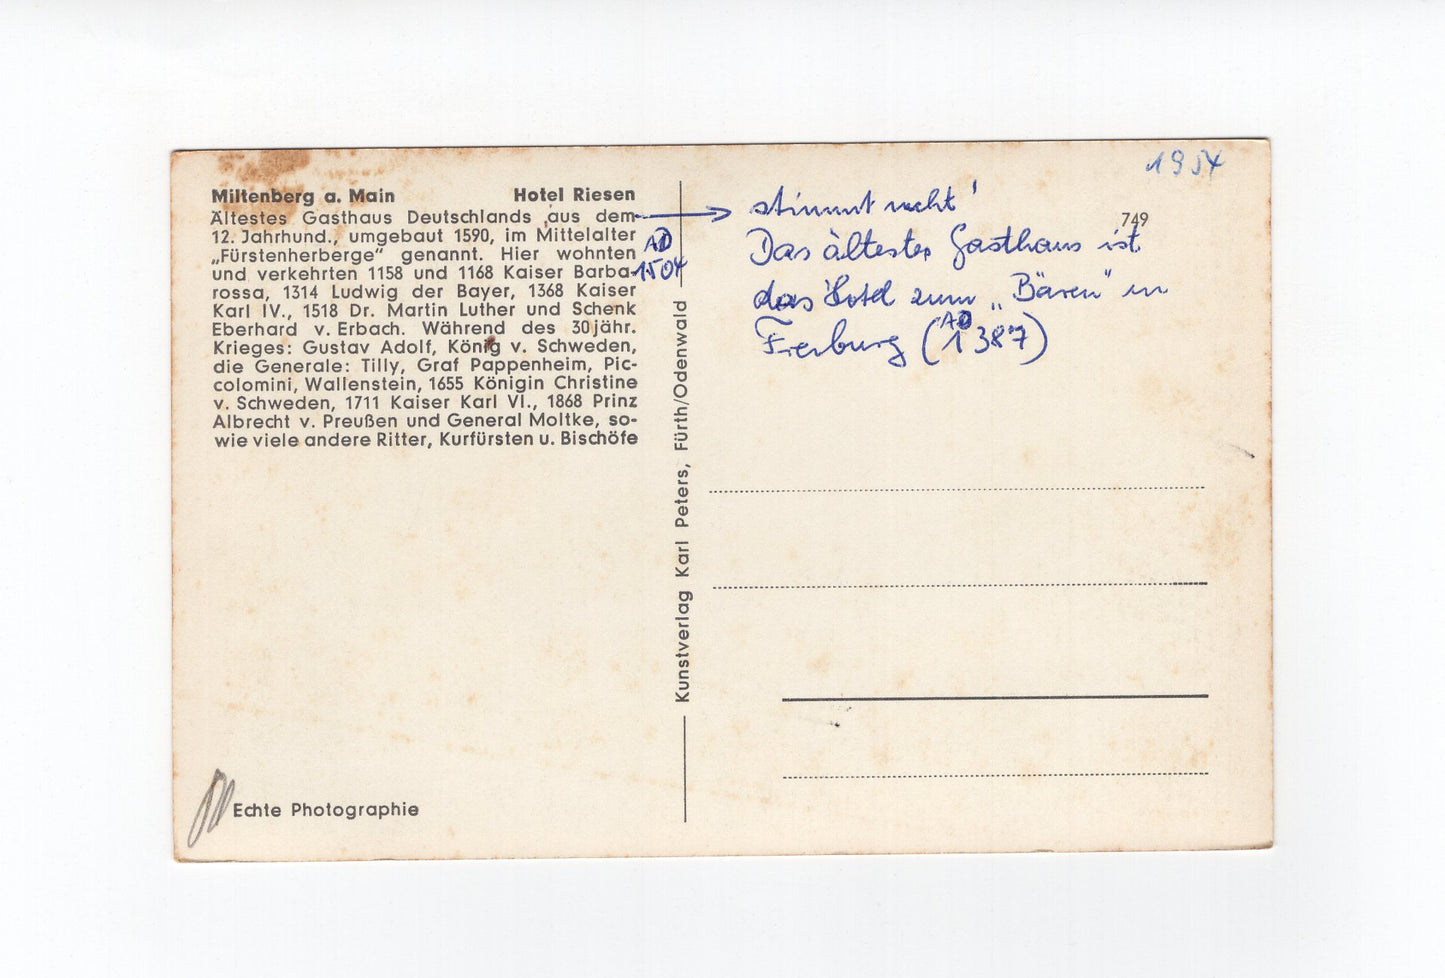 Miltenberg a. Main Hotel Riesen
Ältestes Gasthaus Deutschlands aus dem
12. Jahrhund., umgebaut 1590, im Mittelalter
„Fürstenherberge“ genannt. Hier wohnten
und verkehrten 1158 und 1168 Kaiser Barba-
rossa, 1314 Ludwig der Bayer, 1368 Kaiser
Karl IV., 1518 Dr. Martin Luther und Schenk
Eberhard v. Erbach. Während des 30jähr.
Krieges: Gustav Adolf, König v. Schweden,
die Generale: Tilly, Graf Pappenheim, Pic-
colomini, Wallenstein, 1655 Königin Christine
v. Schweden, 1711 Kaiser Karl VI., 1868 Prinz
Albrecht v. Preußen und General Moltke, so-
wie viele andere Ritter, Kurfürsten u. Bischöfe
AD
1504
Echte Photographie
Kunstverlag Karl Peters, Fürth/Odenwald
1954
749
stimmt nicht!
Das älteste Gasthaus ist
das Hotel zum „Bären" in
Freiburg (AD 1387)